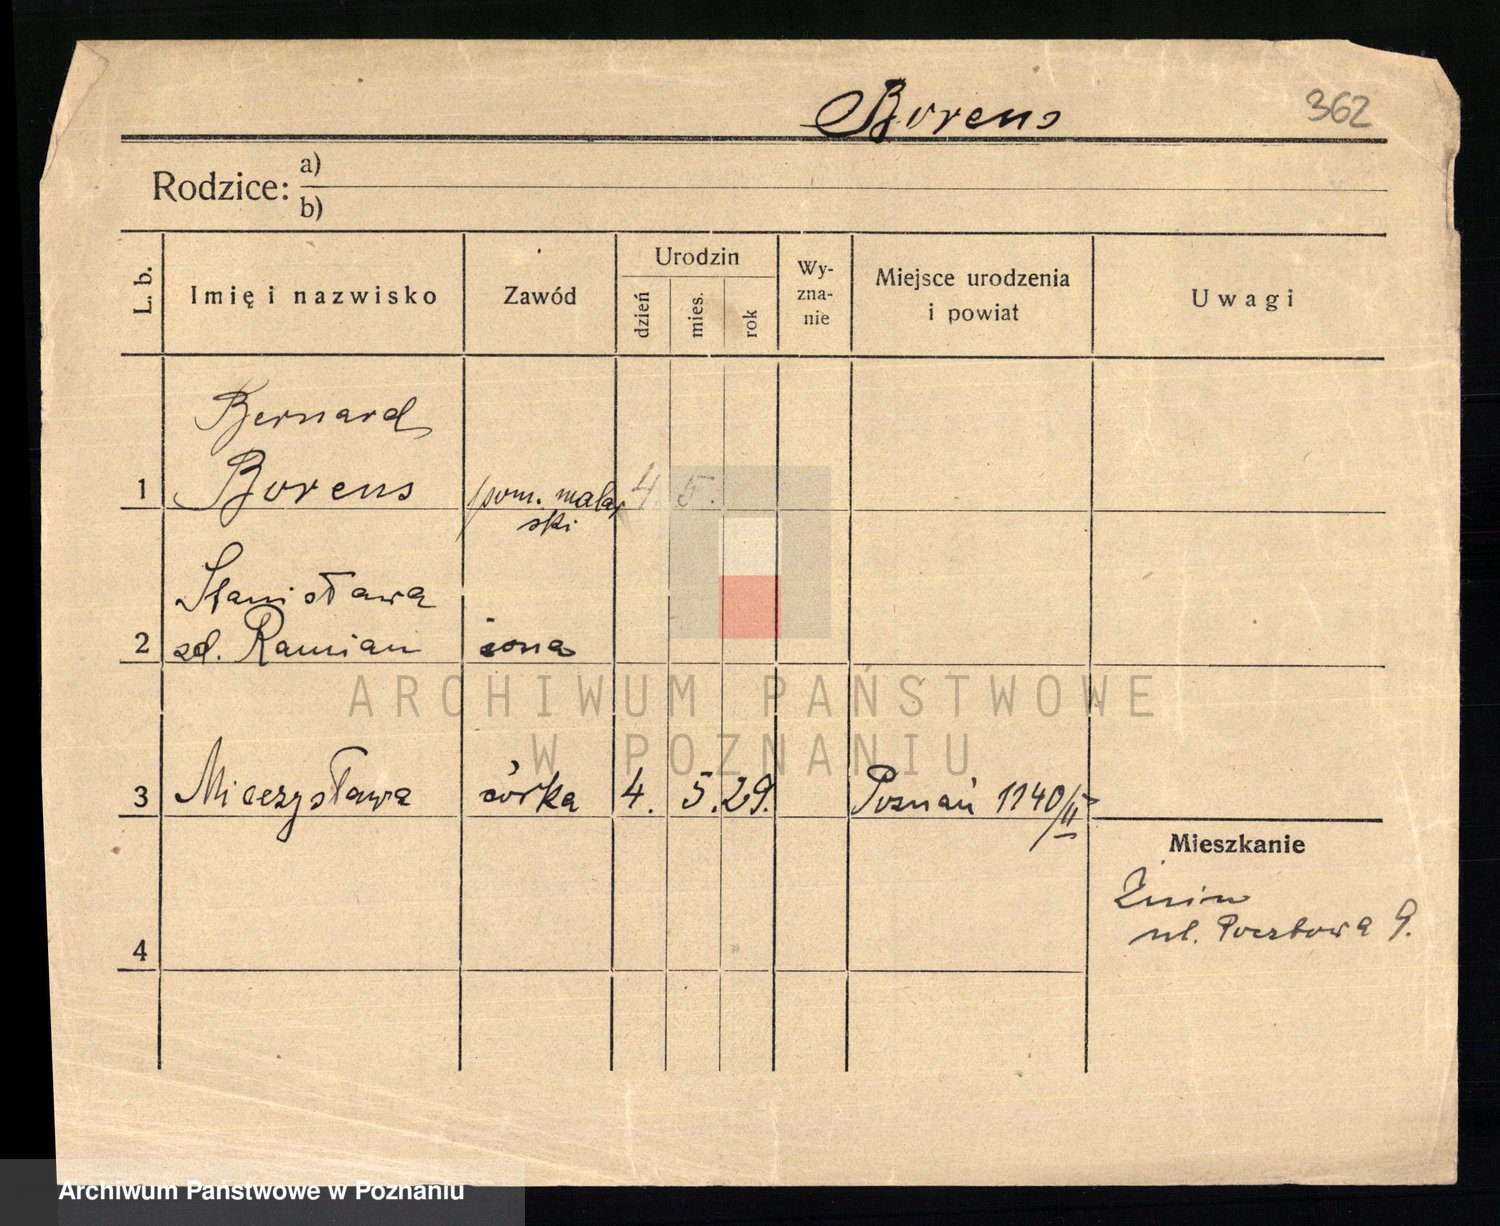 Borens
362
Rodzice: a)
b)
L. b.
Imię i nazwisko
Zawód
Urodzin
dzień
mies.
rok
Wy-
zna-
nie
Miejsce urodzenia
i powiat
Uwagi
Bernard
1 Borens pom. malar 4. 5.
ski
Stanisława
2 zd. Ramian żona
ARCHIWUM PAŃSTWOWE
W POZNANIU
3 Mieczysława córka 4. 5. 29. Poznań 1140/II
Mieszkanie
Żnin
ul. Pocztowa 9.
4
Archiwum Państwowe w Poznaniu